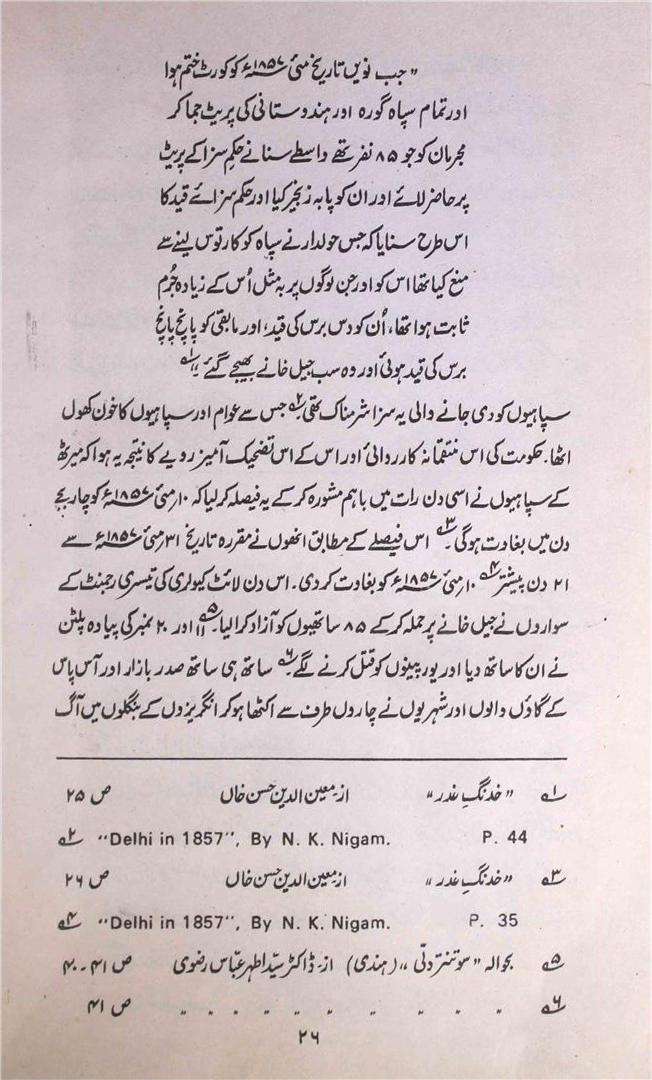 "جب نویں تاریخ مئی ۱۸۵۷ء کو کورٹ ختم ہوا
اور تمام سپاہ گورہ اور ہندوستانی کی پریٹ جما کر
مجرمان کو جو ۸۵ نفر تھے واسطے سنانے حکم سزا کے پریٹ
پر حاضر لائے اور ان کو پابہ زنجیر کیا اور حکم سزائے قید کا
اس طرح سنایا کہ جس حولدار نے سپاہ کو کارتوس لینے سے
منع کیا تھا اس کو اور جن لوگوں پر بہ مثل اُس کے زیادہ جُرم
ثابت ہوا تھا، اُن کو دس برس کی قید، اور مابقی کو پانچ پانچ
برس کی قید ہوئی اور وہ سب جیل خانے بھیجے گئے۔"۱؎
سپاہیوں کو دی جانے والی یہ سزا شرمناک تھی۲؎ جس سے عوام اور سپاہیوں کا خون کھول
اٹھا۔ حکومت کی اس منتقمانہ کارروائی اور اس کے اس تضحیک آمیز رویے کا نتیجہ یہ ہوا کہ میرٹھ
کے سپاہیوں نے اسی دن رات میں باہم مشورہ کر کے یہ فیصلہ کر لیا کہ ۱۰ مئی ۱۸۵۷ء کو چار بجے
دن میں بغاوت ہوگی۔۳؎ اس فیصلے کے مطابق انھوں نے مقررہ تاریخ ۳۱ مئی ۱۸۵۷ء سے
۲۱ دن پیشتر۴؎ ۱۰ مئی ۱۸۵۷ء کو بغاوت کر دی۔ اس دن لائٹ کیولری کی تیسری رجمنٹ کے
سواروں نے جیل خانے پر حملہ کر کے ۸۵ ساتھیوں کو آزاد کرا لیا۔۵؎ ۱۱ اور ۲۰ نمبر کی پیادہ پلٹن
نے ان کا ساتھ دیا اور یورپینوں کو قتل کرنے لگے۔۶؎ ساتھ ہی ساتھ صدر بازار اور آس پاس
کے گاؤں والوں اور شہریوں نے چاروں طرف سے اکٹھا ہو کر انگریزوں کے بنگلوں میں آگ
۱؎ "خدنگِ غدر" از: معین الدین حسن خاں ص ۲۵
۲؎ "Delhi in 1857", By N. K. Nigam. P. 44
۳؎ "خدنگِ غدر" از: معین الدین حسن خاں ص ۲۶
۴؎ "Delhi in 1857", By N. K. Nigam. P. 35
۵؎ بحوالہ "سوتنتر دلّی" (ہندی) از: ڈاکٹر سیّد اطہر عبّاس رضوی ص ۴۱-۴۰
۶؎ " " " " " " " " ص ۴۱
۲۶